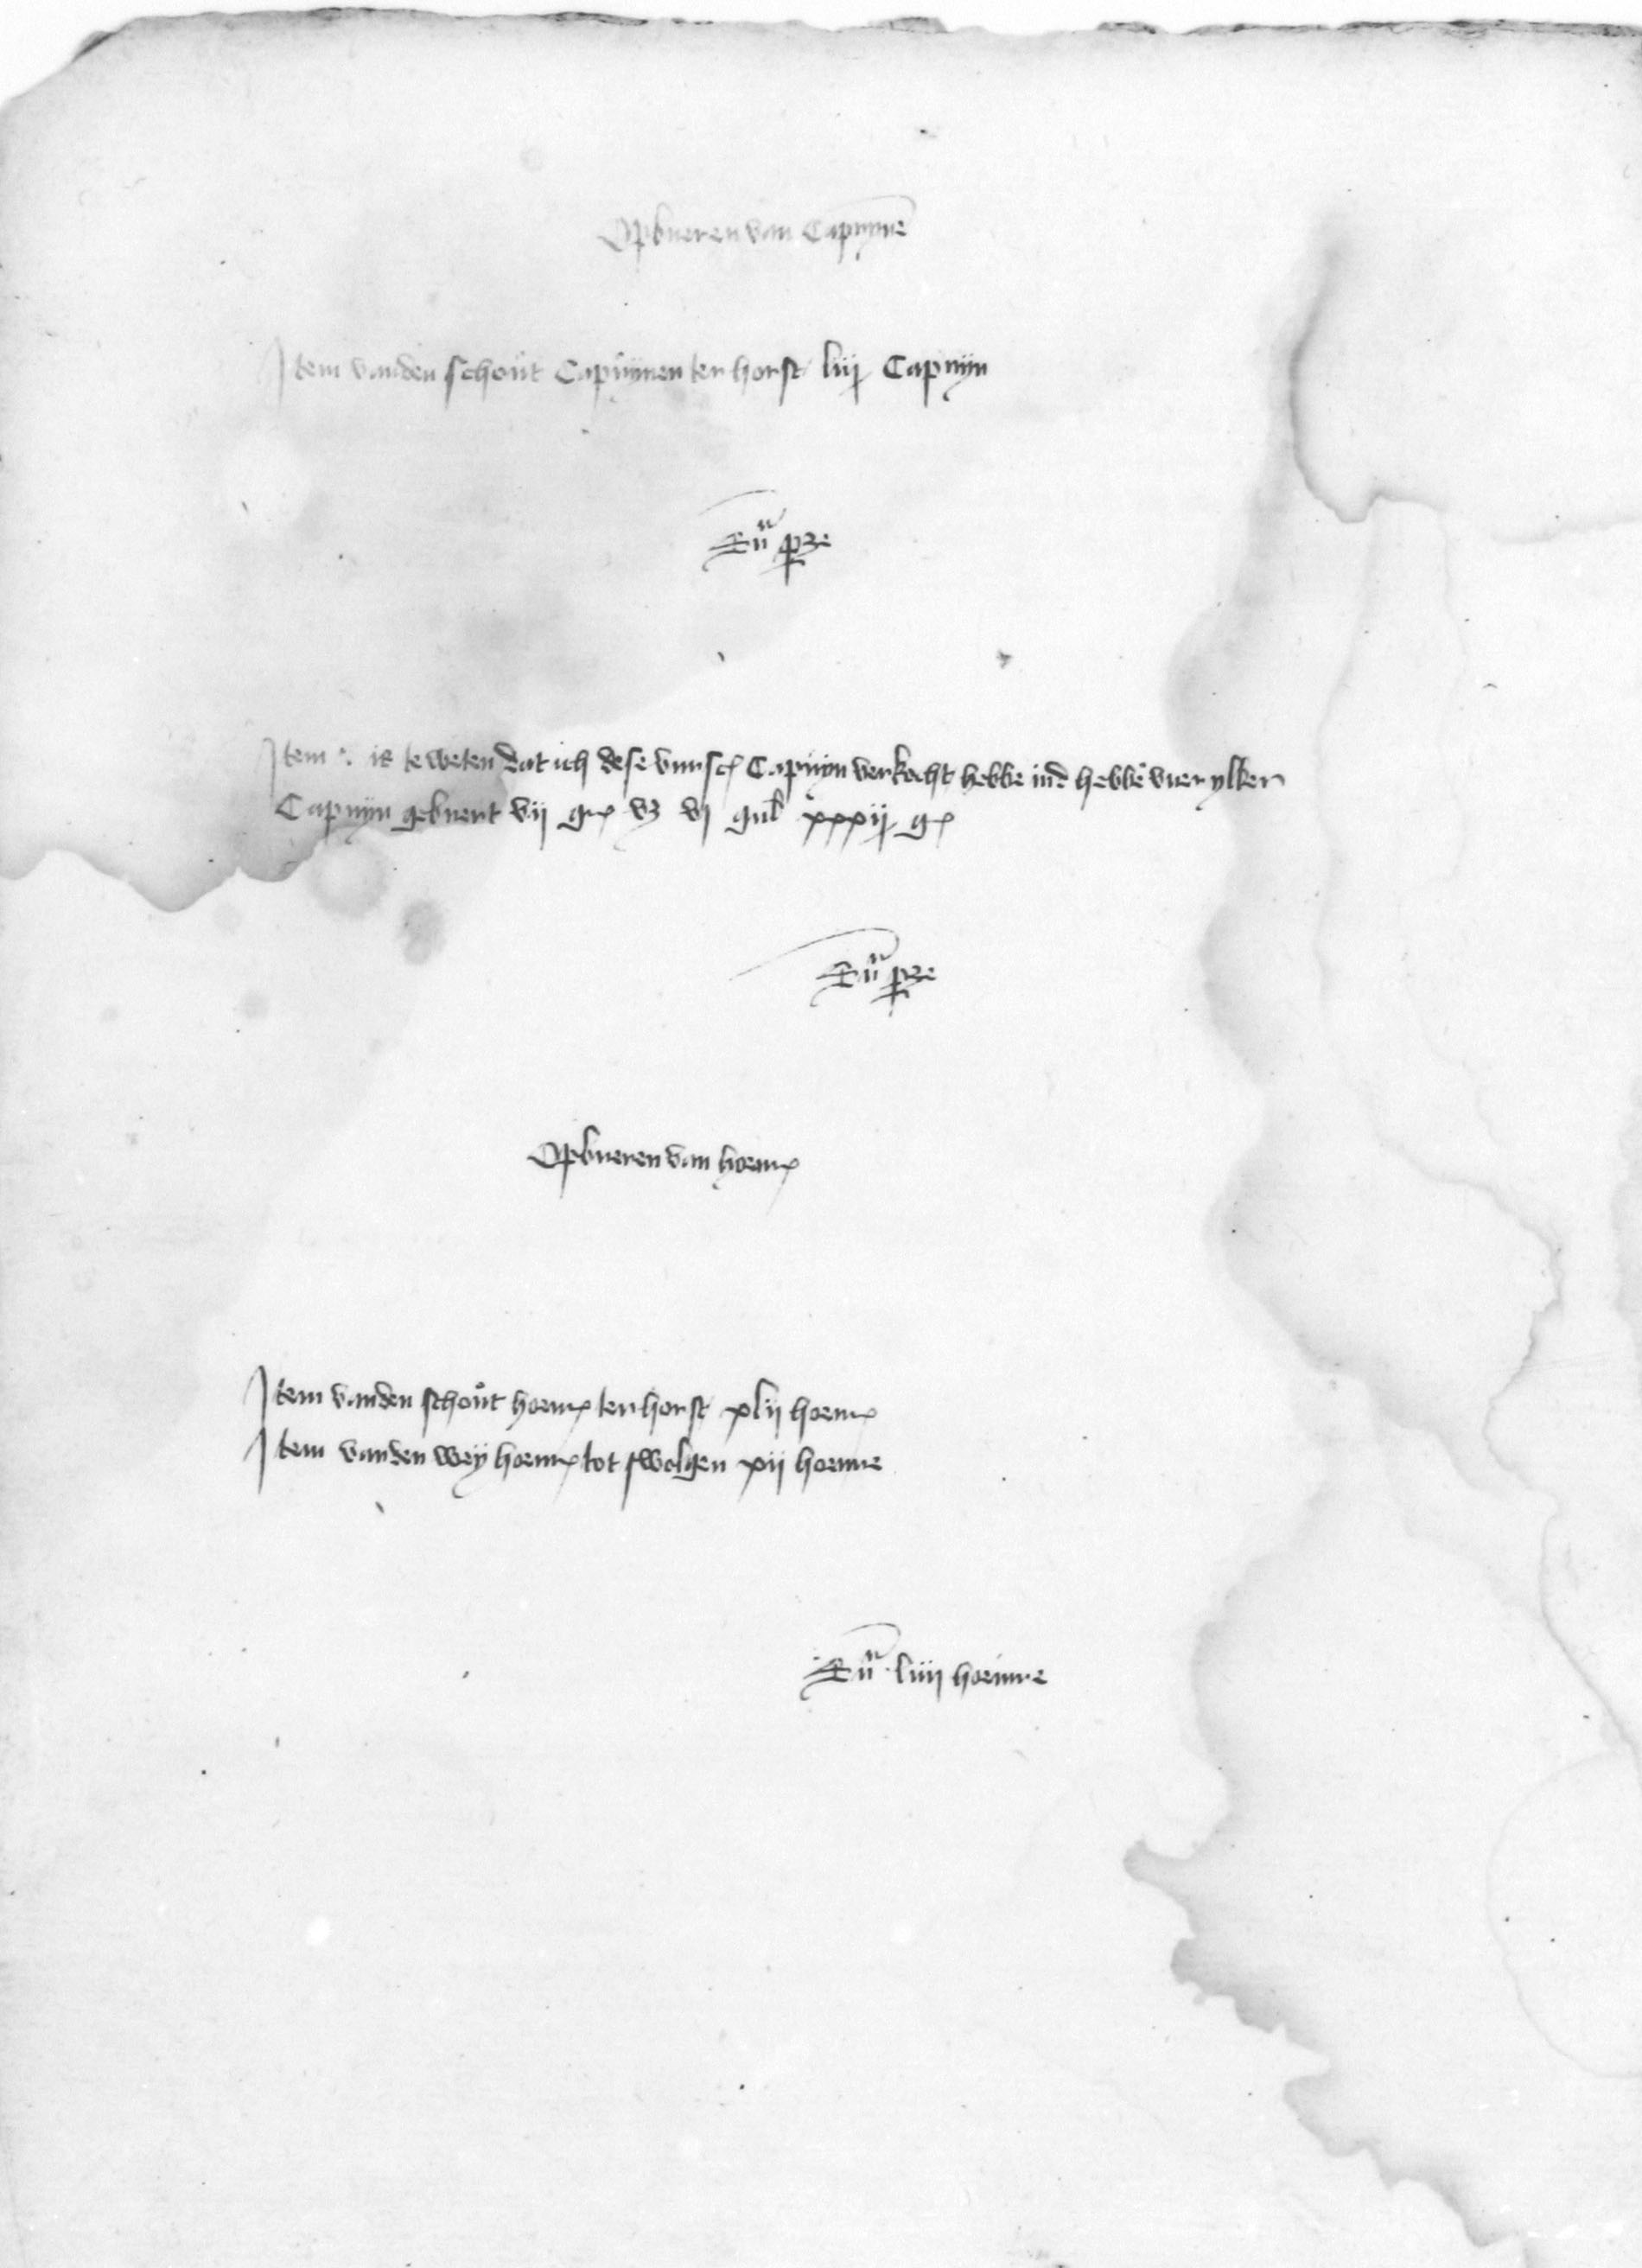 Opbueren van Capuyne
Item vanden schout Capuynen ter horst liij Capuyn
Su͞a p͟ꝫe
Item is te weten dat ich dese vursc Capuyn verkocht hebbe ind hebbe vuer ylker
Capuyn gebuert vij gr vꝫ vj gul xxxij g
Su͞a p͟ꝫe
Opbueren van hoenr
Item vanden schout hoenr ter horst xlij hoenr
Item vanden wey hoenr tot swolgen xij hoenre
Su͞a liiij hoenre